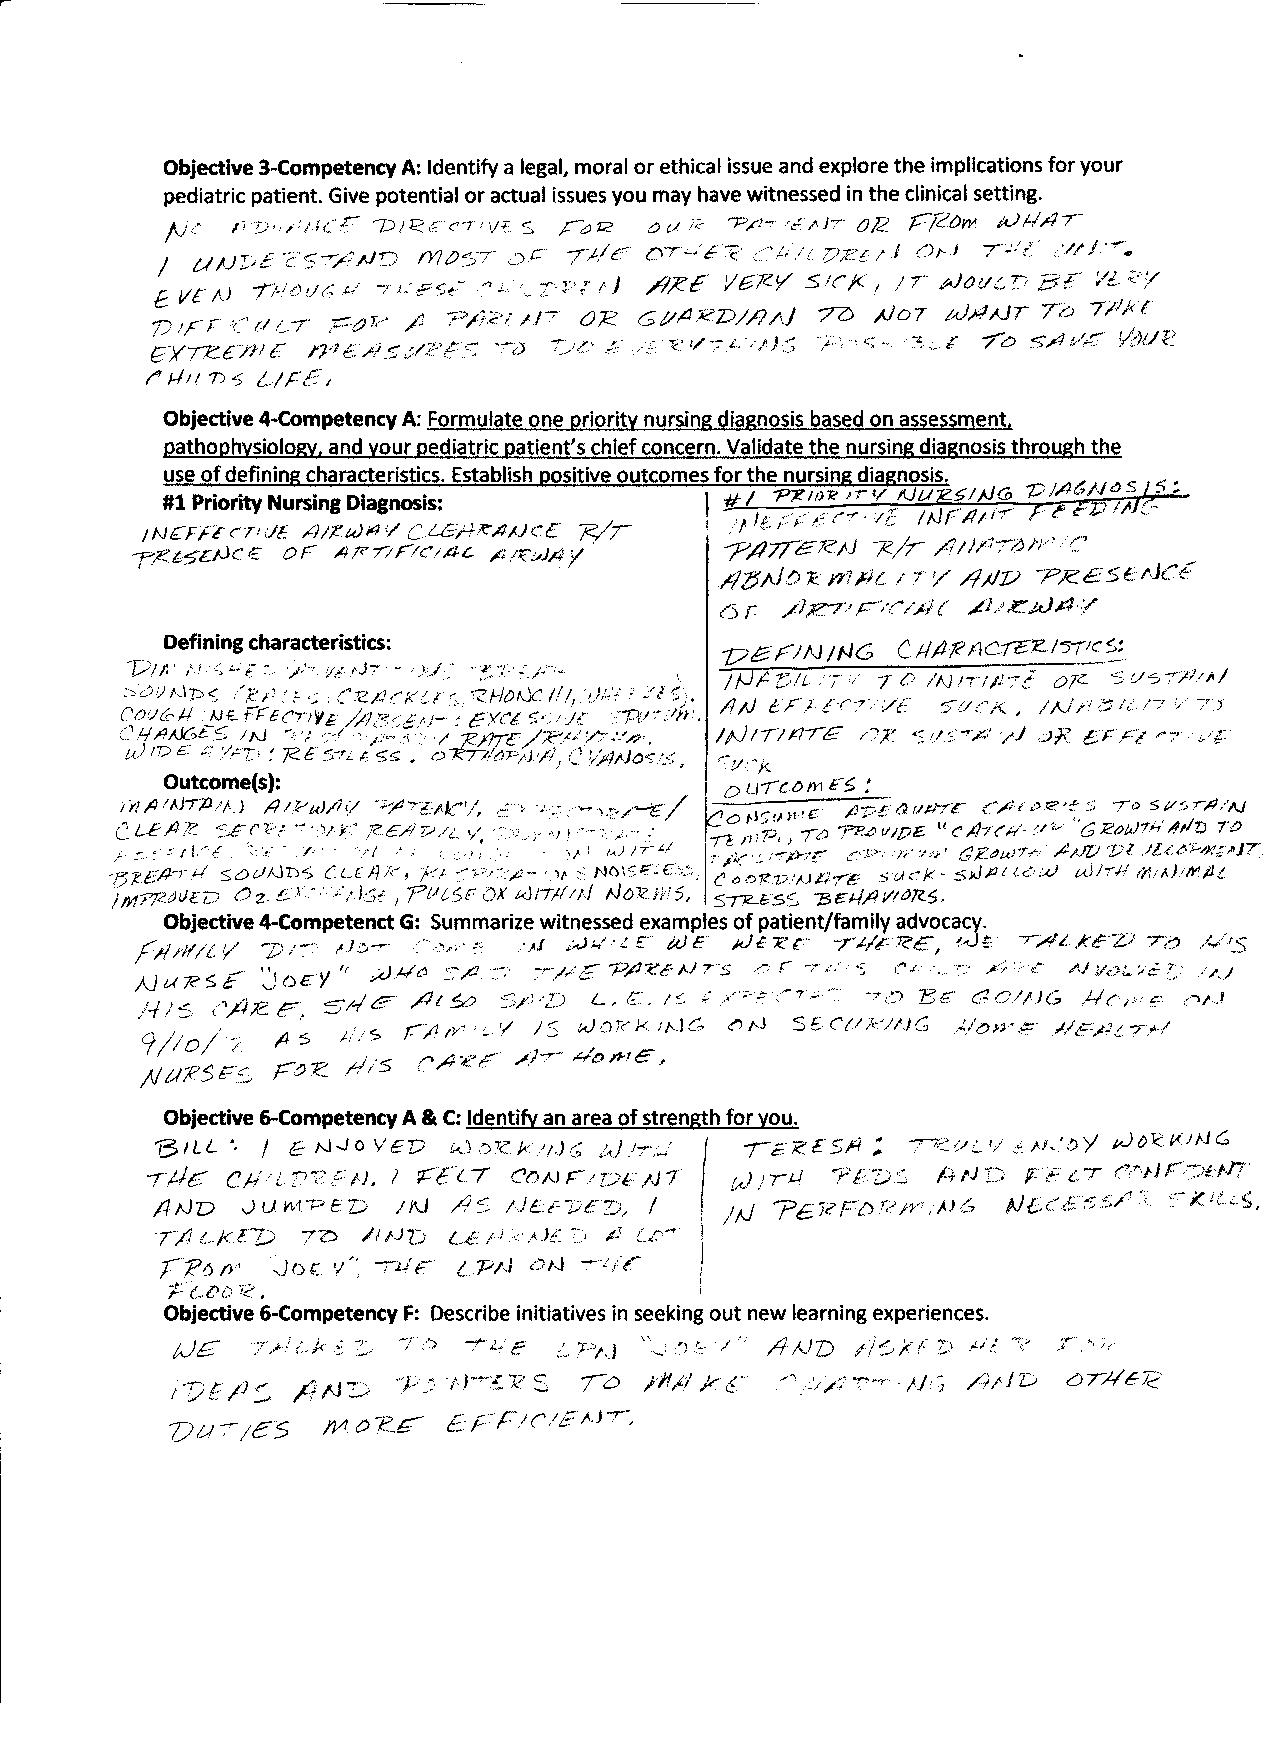 Objective 3-Competency A: Identify a legal, moral or ethical issue and explore the implications for your
pediatric patient. Give potential or actual issues you may have witnessed in the clinical setting.
NO ADVANCE DIRECTIVES FOR OUR PATIENT OR FROM WHAT
I UNDERSTAND MOST OF THE OTHER CHILDREN ON THE UNIT.
EVEN THOUGH THESE CHILDREN ARE VERY SICK, IT WOULD BE VERY
DIFFICULT FOR A PARENT OR GUARDIAN TO NOT WANT TO TAKE
EXTREME MEASURES TO DO EVERYTHING POSSIBLE TO SAVE YOUR
CHILDS LIFE.
Objective 4-Competency A: Formulate one priority nursing diagnosis based on assessment,
pathophysiology, and your pediatric patient's chief concern. Validate the nursing diagnosis through the
use of defining characteristics. Establish positive outcomes for the nursing diagnosis.
#1 Priority Nursing Diagnosis:
INEFFECTIVE AIRWAY CLEARANCE R/T
PRESENCE OF ARTIFICIAL AIRWAY
Defining characteristics:
DIMINISHED BREATH
SOUNDS (RALES, CRACKLES, RHONCHI,
COUGH INEFFECTIVE/ABSENT; EXCESSIVE SPUTUM,
CHANGES IN RATE/RHYTHM,
WIDE EYED; RESTLESS, ORTHOPNIA, CYANOSIS,
Outcome(s):
MAINTAIN AIRWAY PATENCY, EXPECTORATE/
CLEAR SECRETIONS READILY,
WITH
BREATH SOUNDS CLEAR, RESPIRATIONS NOISELESS,
IMPROVED O2 EXCHANGE, PULSE OX WITHIN NORMS,
#1 PRIORITY NURSING DIAGNOSIS:
INEFFECTIVE INFANT FEEDING
PATTERN R/T ANATOMIC
ABNORMALITY AND PRESENCE
OF ARTIFICIAL AIRWAY
DEFINING CHARACTERISTICS:
INABILITY TO INITIATE OR SUSTAIN
AN EFFECTIVE SUCK, INABILITY TO
INITIATE OR SUSTAIN OR EFFECTIVE
SUCK
OUTCOMES:
CONSUME ADEQUATE CALORIES TO SUSTAIN
TEMP., TO PROVIDE "CATCH-UP" GROWTH AND TO
FACILITATE OPTIMUM GROWTH AND DEVELOPMENT.
COORDINATE SUCK-SWALLOW WITH MINIMAL
STRESS BEHAVIORS.
Objective 4-Competenct G: Summarize witnessed examples of patient/family advocacy.
FAMILY DID NOT COME IN WHILE WE WERE THERE, WE TALKED TO HIS
NURSE "JOEY" WHO SAID THE PARENTS OF THIS CHILD ARE NVOLVED IN
HIS CARE. SHE ALSO SAID L.E. IS EXPECTED TO BE GOING HOME ON
9/10/ AS HIS FAMILY IS WORKING ON SECURING HOME HEALTH
NURSES FOR HIS CARE AT HOME.
Objective 6-Competency A & C: Identify an area of strength for you.
BILL: I ENJOYED WORKING WITH
THE CHILDREN. I FELT CONFIDENT
AND JUMPED IN AS NEEDED, I
TALKED TO AND LEARNED A LOT
FROM "JOEY", THE LPN ON THE
FLOOR.
TERESA: TRULY ENJOY WORKING
WITH PEDS AND FELT CONFIDENT
IN PERFORMING NECESSARY SKILLS.
Objective 6-Competency F: Describe initiatives in seeking out new learning experiences.
WE TALKED TO THE LPN "JOEY" AND ASKED HER FOR
IDEAS AND POINTERS TO MAKE CHARTING AND OTHER
DUTIES MORE EFFICIENT.